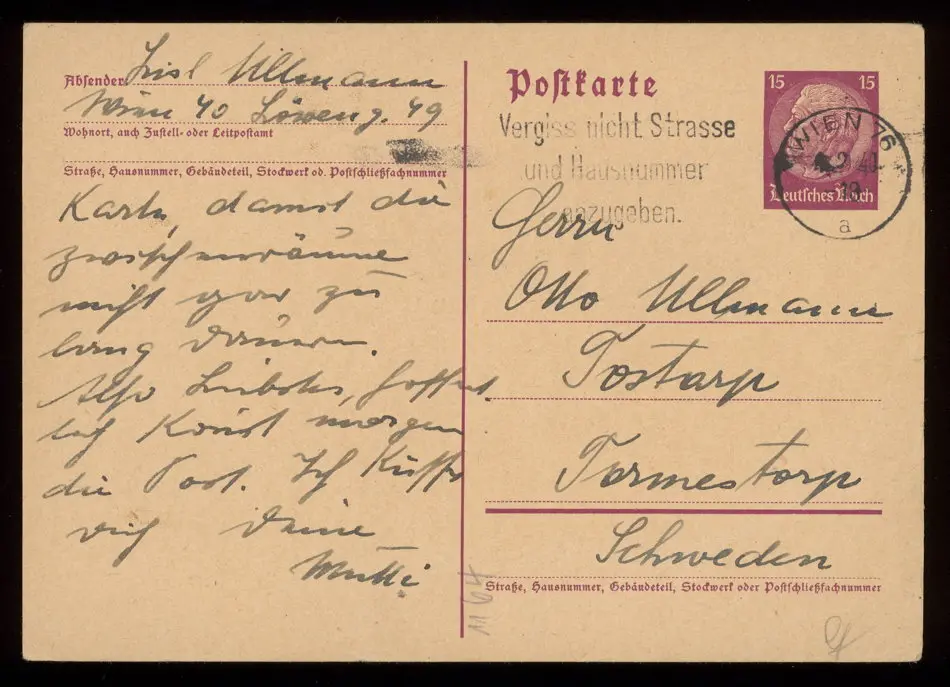 Absender: Lisl Ullmann
Wien 40 Löweng. 49
Wohnort, auch Zustell- oder Leitpostamt
Straße, Hausnummer, Gebäudeteil, Stockwerk od. Postschließfachnummer
Karte, damit die
zwischenräume
nicht gar zu
lang dauern.
Also Liebstes, hoffent
lich kommt morgen
die Post. Ich küsse
dich deine
Mutti
Postkarte
Vergiss nicht Strasse
und Hausnummer
anzugeben.
15 15
Deutsches Reich
WIEN 76
2.40
a
Herrn
Otto Ullmann
Tostarp
Tormestorp
Schweden
Straße, Hausnummer, Gebäudeteil, Stockwerk oder Postschließfachnummer